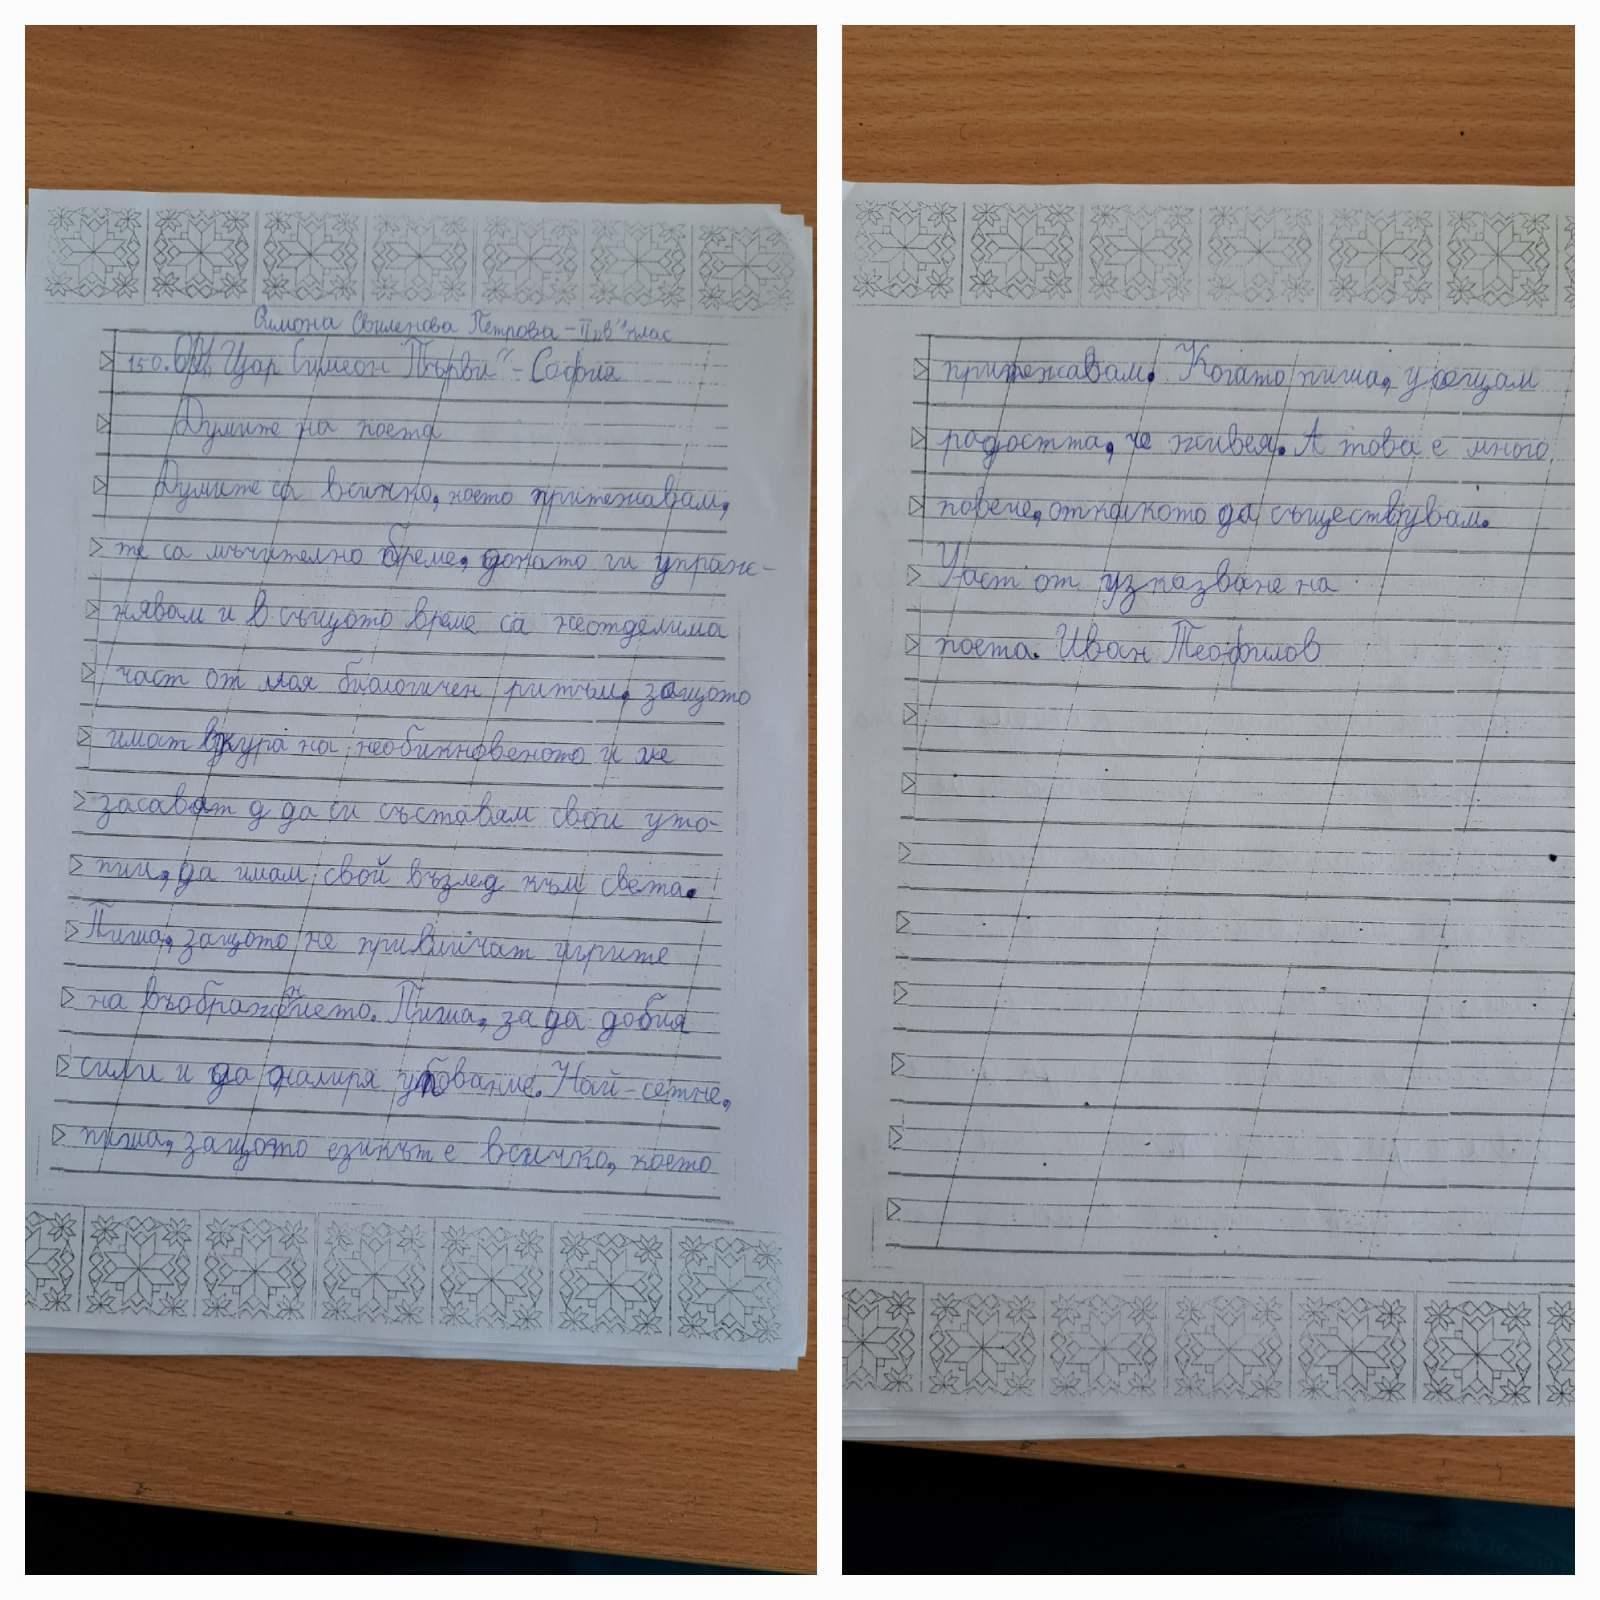 Симона Свиленова Петрова - II "в" клас
150. ОУ "Цар Симеон Първи" - София
Думите на поета
Думите са всичко, което притежавам,
те са мъчително бреме, докато ги упраж-
нявам и в същото време са неотделима
част от моя биологичен ритъм, защото
имат вкура на необикновеното и ме
засават д да си съставям свои уто-
пии, да имам свой възлед към света.
Пиша, защото не привличат игрите
на въображението. Пиша, за да добия
сили и да намиря упование. Най-сетне,
пиша, защото езикът е всичко, което
притежавам. Когато пиша, усещам
радостта, че живея. А това е много
повече, отколкото да съществувам.
Част от узказване на
поета. Иван Теофилов